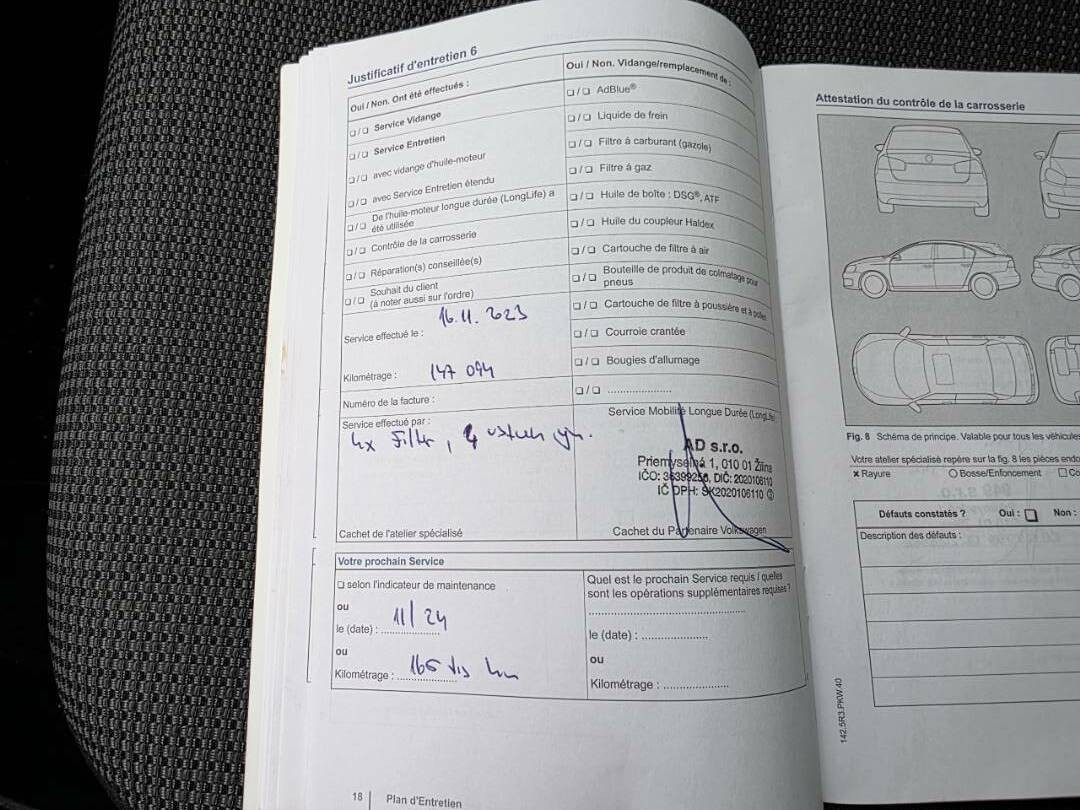 Justificatif d'entretien 6
Oui / Non. Ont été effectués :
❏ / ❏ Service Vidange
❏ / ❏ Service Entretien
❏ / ❏ avec vidange d'huile-moteur
❏ / ❏ avec Service Entretien étendu
❏ / ❏ De l'huile-moteur longue durée (LongLife) a
été utilisée
❏ / ❏ Contrôle de la carrosserie
❏ / ❏ Réparation(s) conseillée(s)
❏ / ❏ Souhait du client
(à noter aussi sur l'ordre)
Service effectué le : 16.11.2023
Kilométrage : 147 094
Numéro de la facture :
Service effectué par :
4x Filter,
Cachet de l'atelier spécialisé
Oui / Non. Vidange/remplacement de :
❏ / ❏ AdBlue®
❏ / ❏ Liquide de frein
❏ / ❏ Filtre à carburant (gazole)
❏ / ❏ Filtre à gaz
❏ / ❏ Huile de boîte : DSG®, ATF
❏ / ❏ Huile du coupleur Haldex
❏ / ❏ Cartouche de filtre à air
❏ / ❏ Bouteille de produit de colmatage pour
pneus
❏ / ❏ Cartouche de filtre à poussière et à pollen
❏ / ❏ Courroie crantée
❏ / ❏ Bougies d'allumage
❏ / ❏ .....................
Service Mobilité Longue Durée (LongLife)
AD s.r.o.
Priemyselná 1, 010 01 Žilina
IČO: 36399256, DIČ: 2020106110
IČ DPH: SK2020106110 ②
Cachet du Partenaire Volkswagen
Votre prochain Service
❏ selon l'indicateur de maintenance
ou
le (date) : 11/24
ou
Kilométrage : 165 tis km
Quel est le prochain Service requis / quelles
sont les opérations supplémentaires requises ?
le (date) : .....................
ou
Kilométrage : .....................
18 Plan d'Entretien
Attestation du contrôle de la carrosserie
Fig. 8 Schéma de principe. Valable pour tous les véhicules
Votre atelier spécialisé repère sur la fig. 8 les pièces
× Rayure ○ Bosse/Enfoncement ❏
Défauts constatés ? Oui : ❏ Non :
Description des défauts :
142.5R3.PKW.40